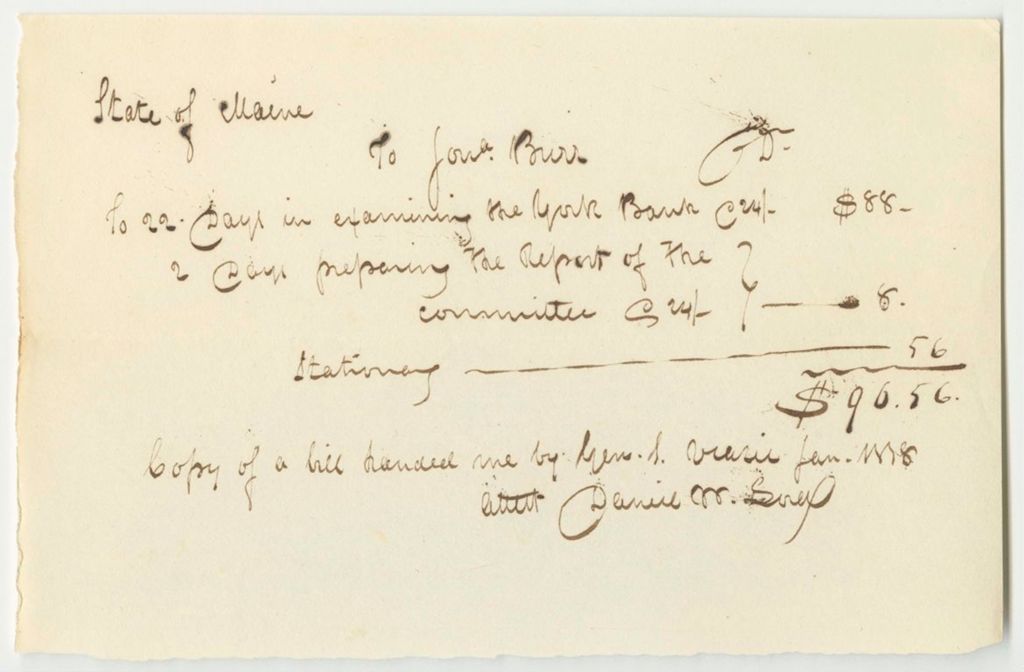 State of Maine
To Jona. Burr Dr
To 22 Days in examining the York Bank @ 24/- $88-
2 Days preparing the Report of the
committee @ 24/- 8.
Stationary 56
$96.56.
Copy of a bill handed me by Gen. S. Veazie Jan. 1838
attest Daniel W. Lord